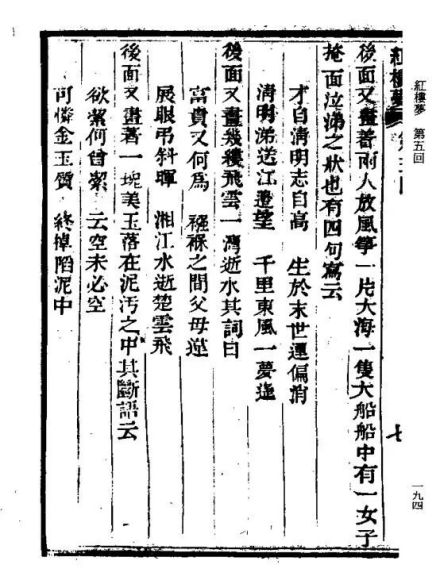 紅樓夢 第五回
一九四
紅樓夢
七
後面又畫著兩人放風箏一片大海一隻大船船中有一女子
掩面泣涕之狀也有四句寫云
才自清明志自高 生於末世運偏消
清明涕送江邊望 千里東風一夢遙
後面又畫幾縷飛雲一灣逝水其詞曰
富貴又何為 襁褓之間父母違
展眼弔斜暉 湘江水逝楚雲飛
後面又畫著一塊美玉落在泥污之中其斷語云
欲絜何曾絜 云空未必空
可憐金玉質 終掉陷泥中